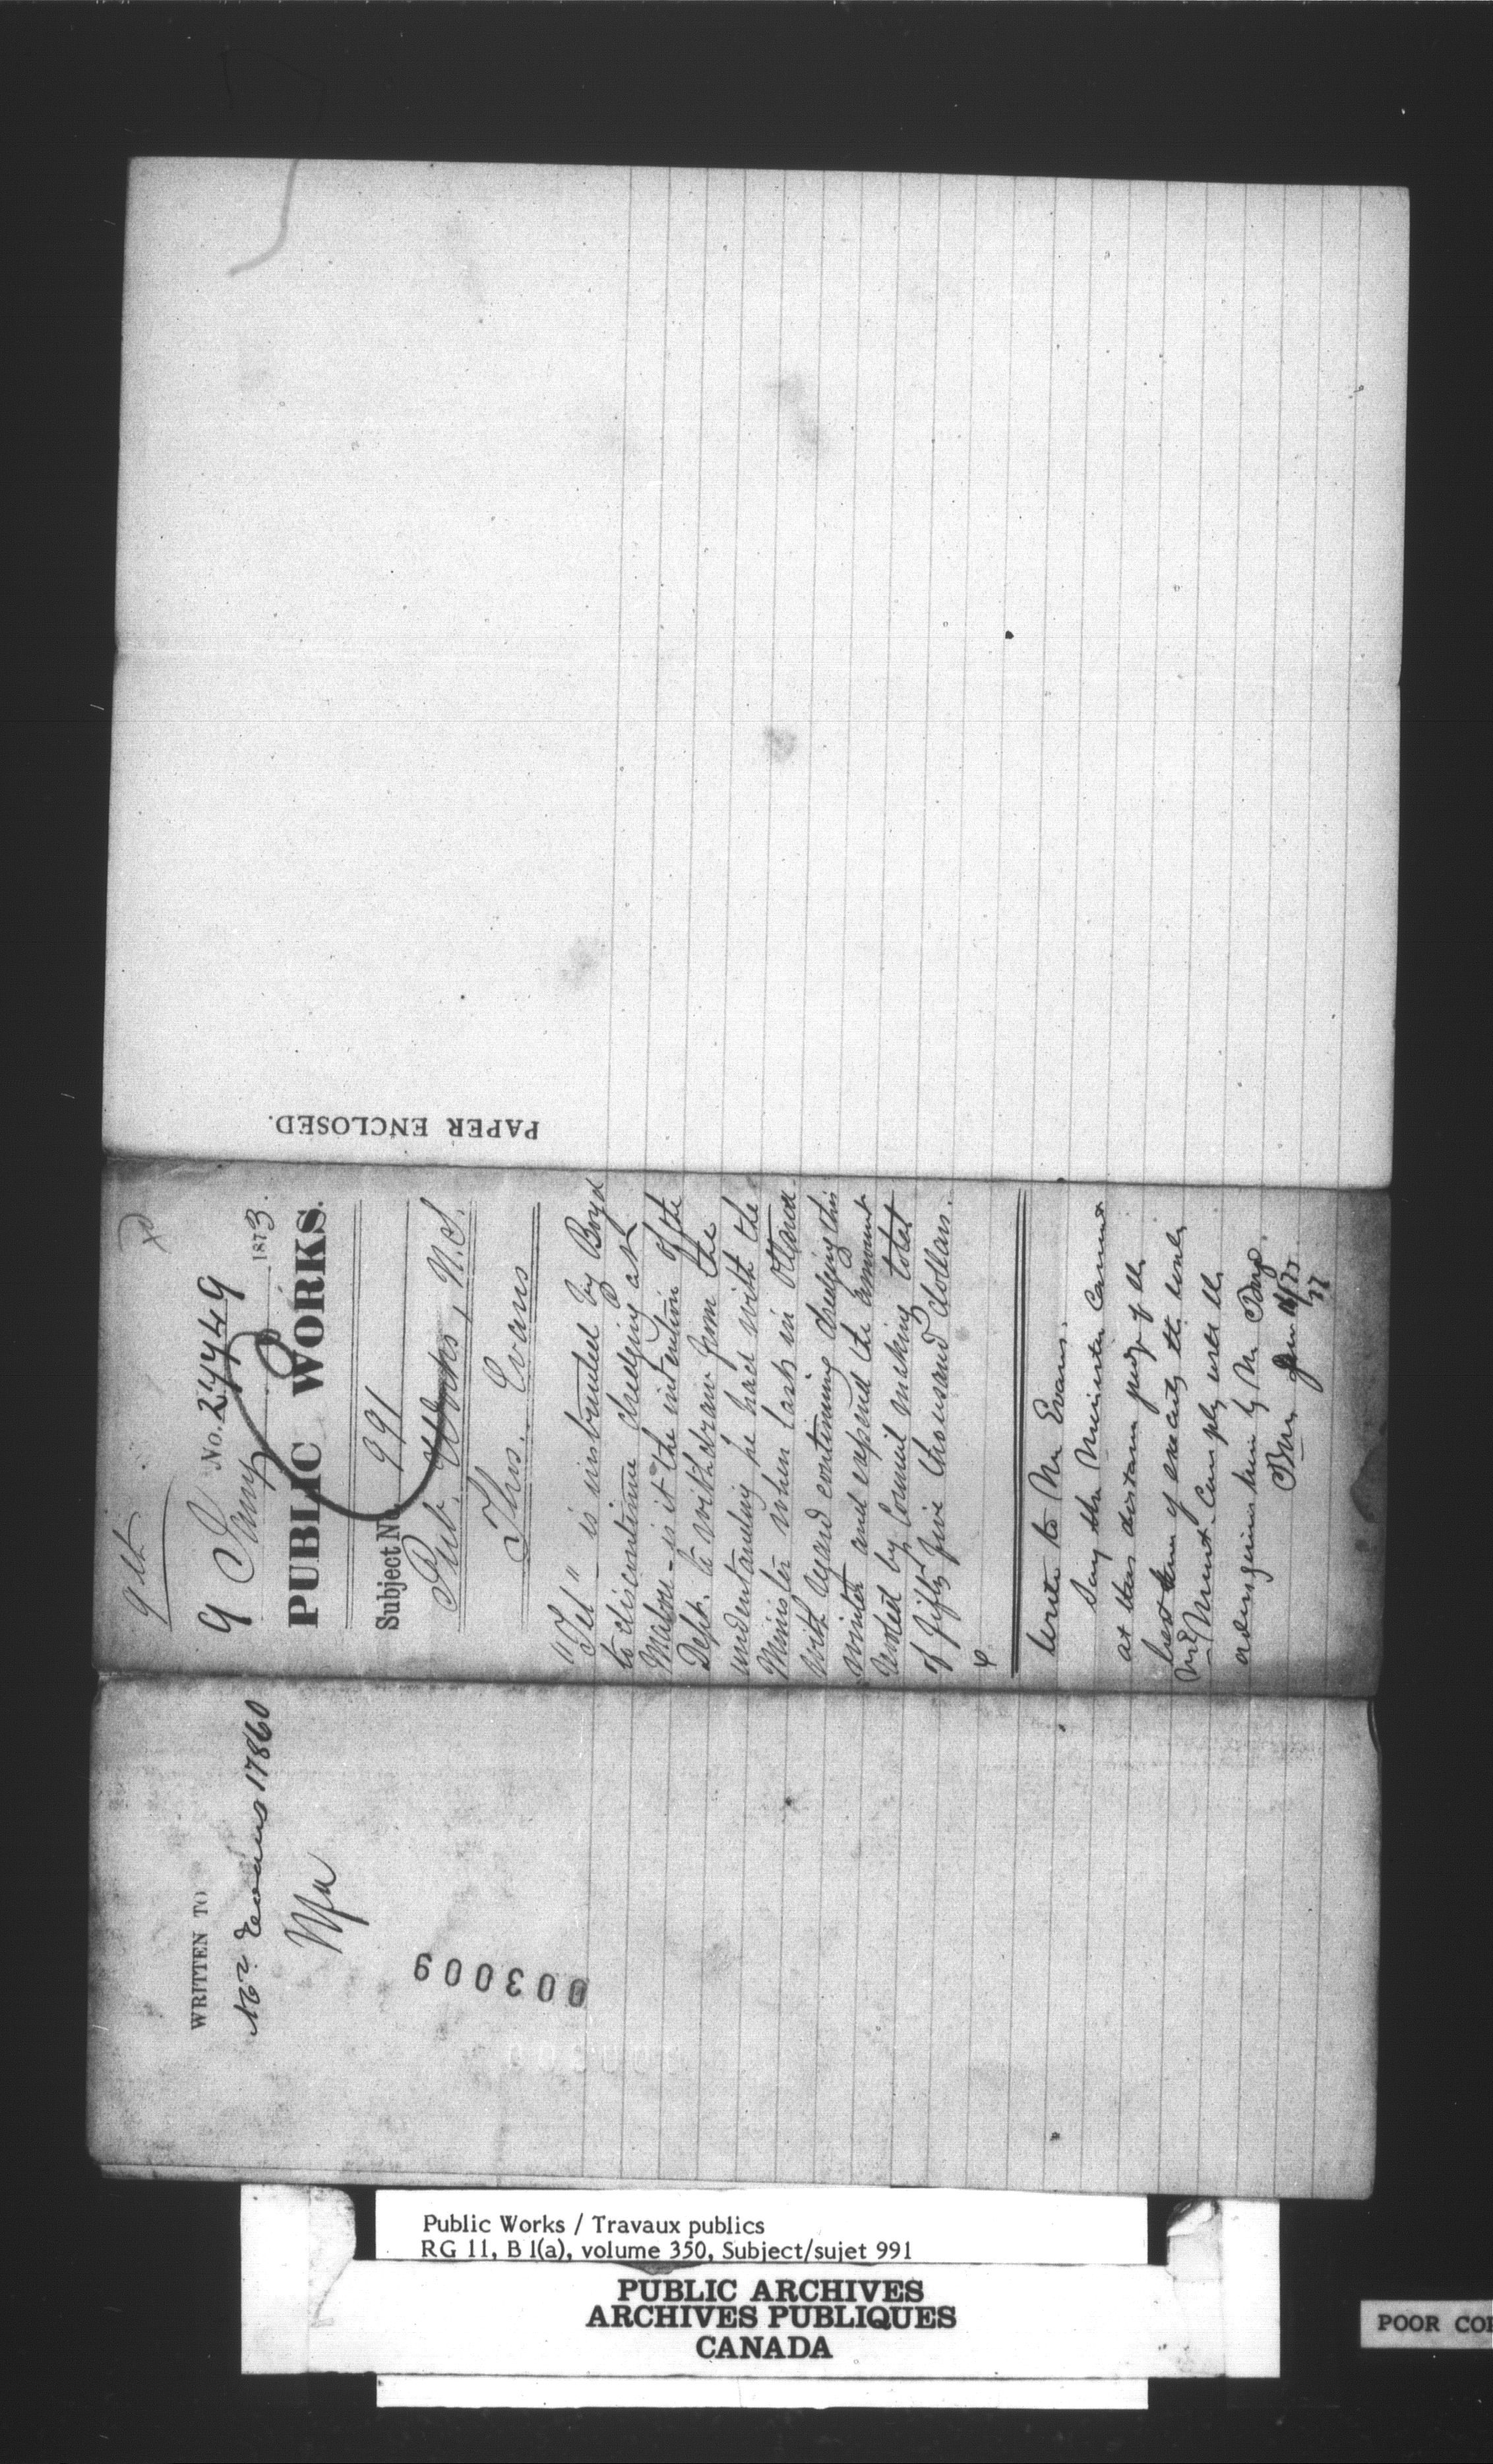 PAPER ENCLOSED.
9th
No. 27449
9 Jany 1873.
PUBLIC WORKS.
Subject No. 991
Pub. Works, N.S.
Thos. Evans
"Tel" is instructed by Boyd
to discontinue dredging at
is it the intention of the
Dept. to withdraw from the
understanding he had with the
Minister when last in Ottawa
with regard continuing dredging this
winter and expend the amount
voted by Council making total
of fifty five thousand dollars.
Write to Mr Evans.
Say the Minister cannot
at this distance judge of the
best time of executing the works
must comply with the
given him by Mr Boyd.
WRITTEN TO
Mr Evans 17860
003009
Public Works / Travaux publics
RG 11, B 1(a), volume 350, Subject/sujet 991
PUBLIC ARCHIVES
ARCHIVES PUBLIQUES
CANADA
POOR COP